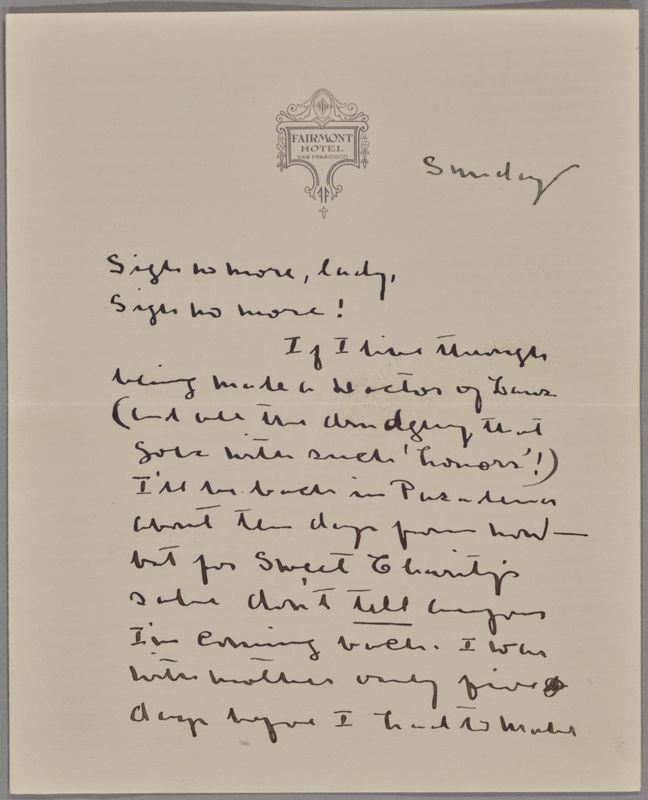 FAIRMONT
HOTEL
SAN FRANCISCO
Sunday
Sigh no more, lady,
Sigh no more!
If I live through
being made a Doctor of Laws
(and all the drudgery that
goes with such 'honors'!)
I'll be back in Pasadena
about ten days from now—
but for Sweet Charity's
sake don't tell anyone
I'm coming back. I was
with mother only five
days before I had to make